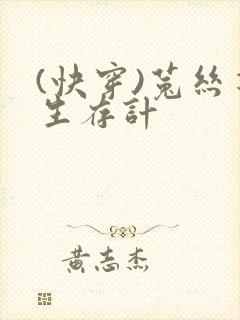 (快穿)菟絲
生存計
黄志杰